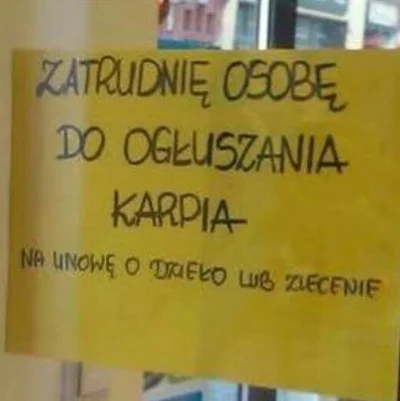 ZATRUDNIĘ OSOBĘ
DO OGŁUSZANIA
KARPIA
NA UMOWĘ O DZIEŁO LUB ZLECENIE